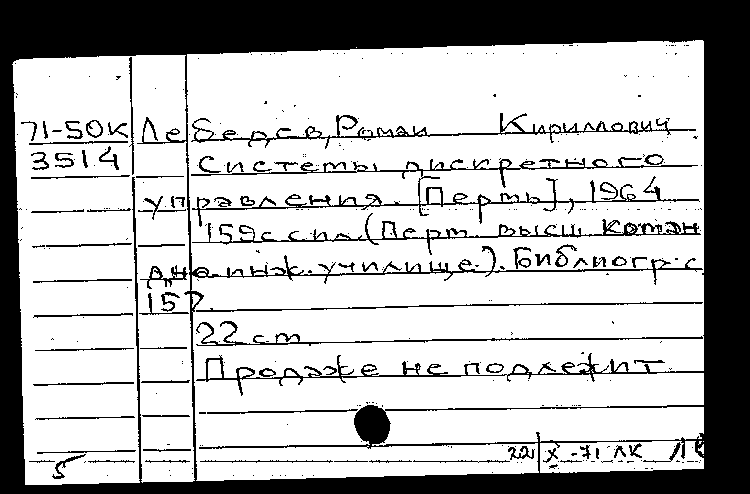 71-50К Лебедев, Роман Кириллович
3514 Системы дискретного
управления. [Пермь], 1964
159с с ил. (Перм. высш коман
дно инж. училище). Библиогр. с
157.
22 см.
Продаже не подлежит
22/X -71 ЛК
5